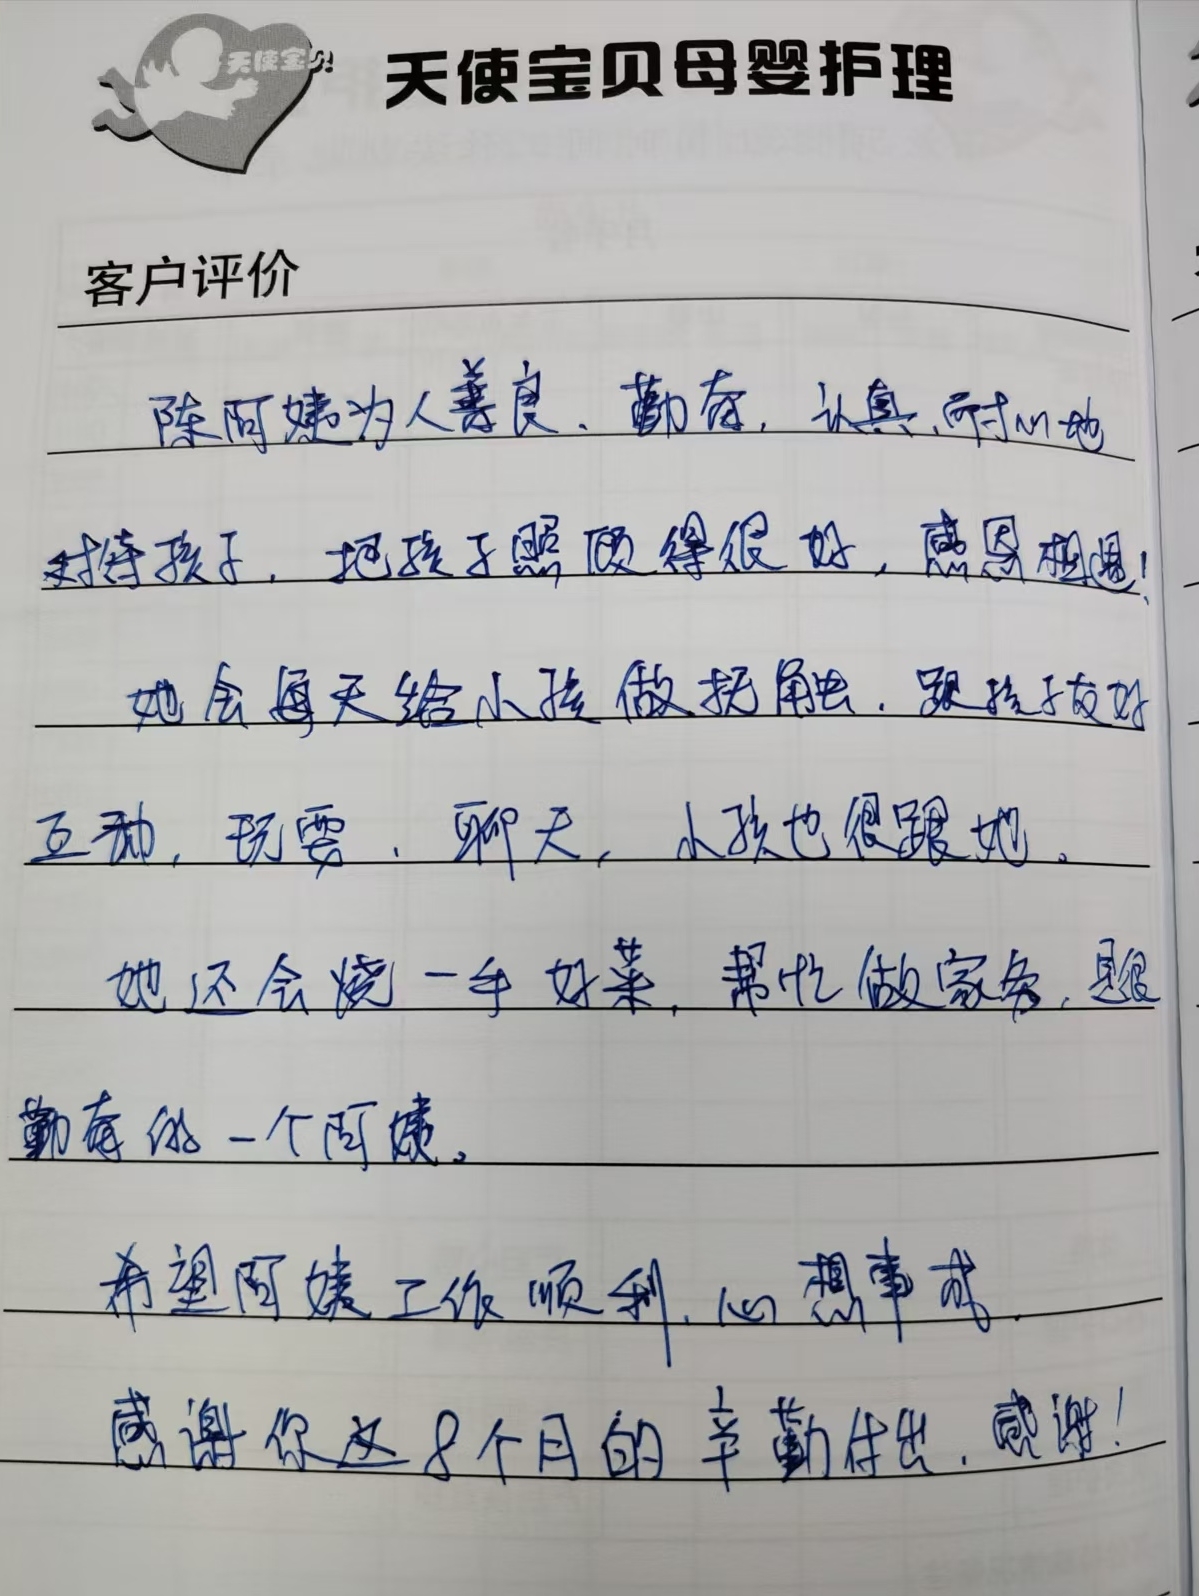 天使宝贝
天使宝贝母婴护理
客户评价
陈阿姨为人善良、勤奋，认真、耐心地
对待孩子，把孩子照顾得很好，感恩相遇！
她会每天给小孩做抚触，跟孩子友好
互动，玩耍、聊天，小孩也很跟她。
她还会烧一手好菜，帮忙做家务，是很
勤奋的一个阿姨。
希望阿姨工作顺利，心想事成。
感谢你这8个月的辛勤付出，感谢！